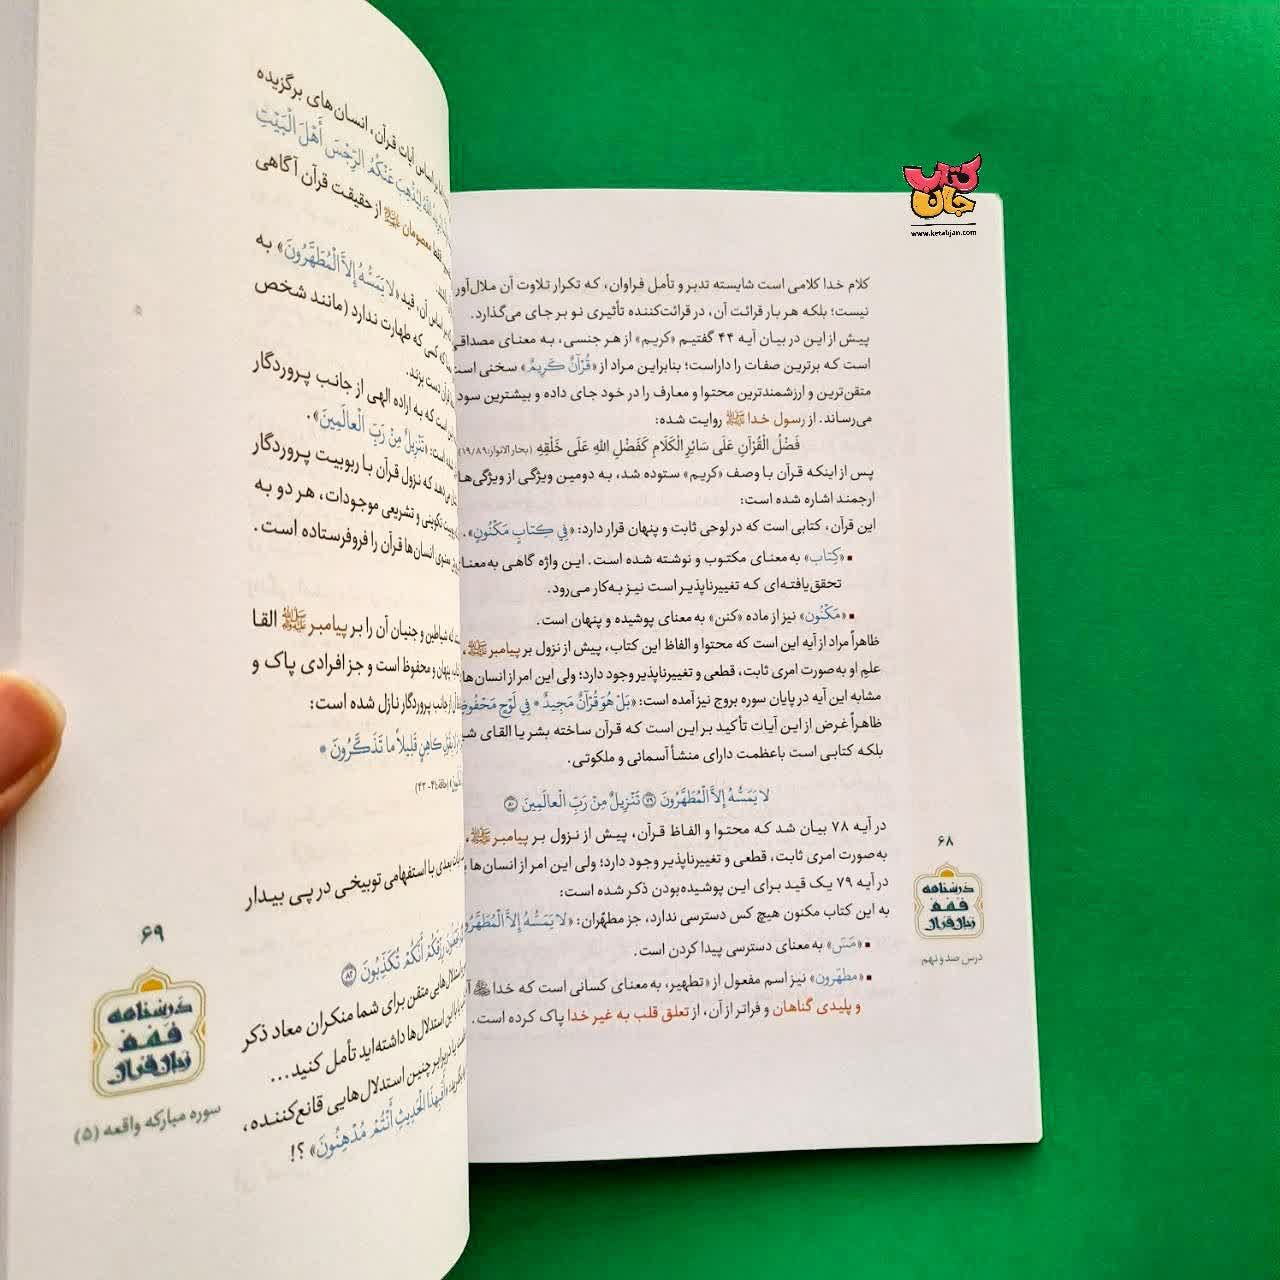 کتاب جان
www.ketabjan.com
کلام خدا کلامی است شایسته تدبر و تأمل فراوان، که تکرار تلاوت آن ملال‌آور
نیست؛ بلکه هر بار قرائت آن، در قرائت‌کننده تأثیری نو بر جای می‌گذارد.
پیش از این در بیان آیه ۴۴ گفتیم «کریم» از هر جنسی، به معنای مصداقی
است که برترین صفات را داراست؛ بنابراین مراد از «قُرْآنٌ کَرِیمٌ» سخنی است
متقن‌ترین و ارزشمندترین محتوا و معارف را در خود جای داده و بیشترین سود
می‌رساند. از رسول خدا ﷺ روایت شده:
فَضْلُ الْقُرْآنِ عَلَی سَائِرِ الْکَلَامِ کَفَضْلِ اللهِ عَلَی خَلْقِهِ (بحار الانوار:۱۹/۸۹)
پس از اینکه قرآن با وصف «کریم» ستوده شد، به دومین ویژگی از ویژگی‌ها
ارجمند اشاره شده است:
این قرآن، کتابی است که در لوحی ثابت و پنهان قرار دارد: «فِي کِتَابٍ مَکْنُونٍ».
▪ «کِتاب» به معنای مکتوب و نوشته شده است. این واژه گاهی به معنا
تحقق‌یافته‌ای که تغییرناپذیر است نیز به‌کار می‌رود.
▪ «مَکْنُون» نیز از ماده «کنن» به معنای پوشیده و پنهان است.
ظاهراً مراد از آیه این است که محتوا و الفاظ این کتاب، پیش از نزول بر پیامبر ﷺ،
علم او به‌صورت امری ثابت، قطعی و تغییرناپذیر وجود دارد؛ ولی این امر از انسان‌ها
مشابه این آیه در پایان سوره بروج نیز آمده است: «بَلْ هُوَ قُرْآنٌ مَجِیدٌ * فِي لَوْحٍ مَحْفُوظٍ
ظاهراً غرض از این آیات تأکید بر این است که قرآن ساخته بشر یا القای
بلکه کتابی است باعظمت دارای منشأ آسمانی و ملکوتی.
لا یَمَسُّهُ إِلاَّ الْمُطَهَّرُونَ ﴿۷۹﴾ تَنْزِیلٌ مِنْ رَبِّ الْعالَمِینَ ﴿۸۰﴾
در آیه ۷۸ بیان شد که محتوا و الفاظ قرآن، پیش از نزول بر پیامبر ﷺ،
به‌صورت امری ثابت، قطعی و تغییرناپذیر وجود دارد؛ ولی این امر از انسان‌ها
در آیه ۷۹ یک قید برای این پوشیده‌بودن ذکر شده است:
به این کتاب مکنون هیچ کس دسترسی ندارد، جز مطهّران: «لا یَمَسُّهُ إِلاَّ الْمُطَهَّرُونَ
▪ «مَسّ» به معنای دسترسی پیدا کردن است.
▪ «مطهّرون» نیز اسم مفعول از «تطهیر، به معنای کسانی است که خدا
و پلیدی گناهان و فراتر از آن، از تعلق قلب به غیر خدا پاک کرده است.
۶۸
درسنامه
فهم
زبان قرآن
درس صد و نهم
اساس آیات قرآن، انسان‌های برگزیده
لِیُذْهِبَ عَنْکُمُ الرِّجْسَ أَهْلَ الْبَیْتِ
فقط معصومان از حقیقت قرآن آگاهی
اساس آن، قید «لا یَمَسُّهُ إِلاَّ الْمُطَهَّرُونَ» به
که کسی که طهارت ندارد (مانند شخص
قرآن دست بزند.
است که به اراده الهی از جانب پروردگار
شده است: «تَنْزِیلٌ مِنْ رَبِّ الْعالَمِینَ».
می‌دهد که نزول قرآن با ربوبیت پروردگار
تکوینی و تشریعی موجودات، هر دو به
معنوی انسان‌ها قرآن را فروفرستاده است.
که شیاطین و جنیان آن را بر پیامبر ﷺ القا
پنهان و محفوظ است و جز افرادی پاک و
از جانب پروردگار نازل شده است:
بِقَوْلِ کاهِنٍ قَلِیلاً ما تَذَکَّرُونَ *
(حاقه:۴۱-۴۳)
بعدی با استفهامی توبیخی در پی بیدار
رِزْقَکُمْ أَنَّکُمْ تُکَذِّبُونَ ﴿۸۲﴾
استدلال‌هایی متقن برای شما منکران معاد ذکر
با این استدلال‌ها داشته‌اید تأمل کنید...
در برابر چنین استدلال‌هایی قانع‌کننده،
«أَفَبِهٰذَا الْحَدِیثِ أَنْتُمْ مُدْهِنُونَ» ؟!
۶۹
درسنامه
فهم
زبان قرآن
سوره مبارکه واقعه (۵)